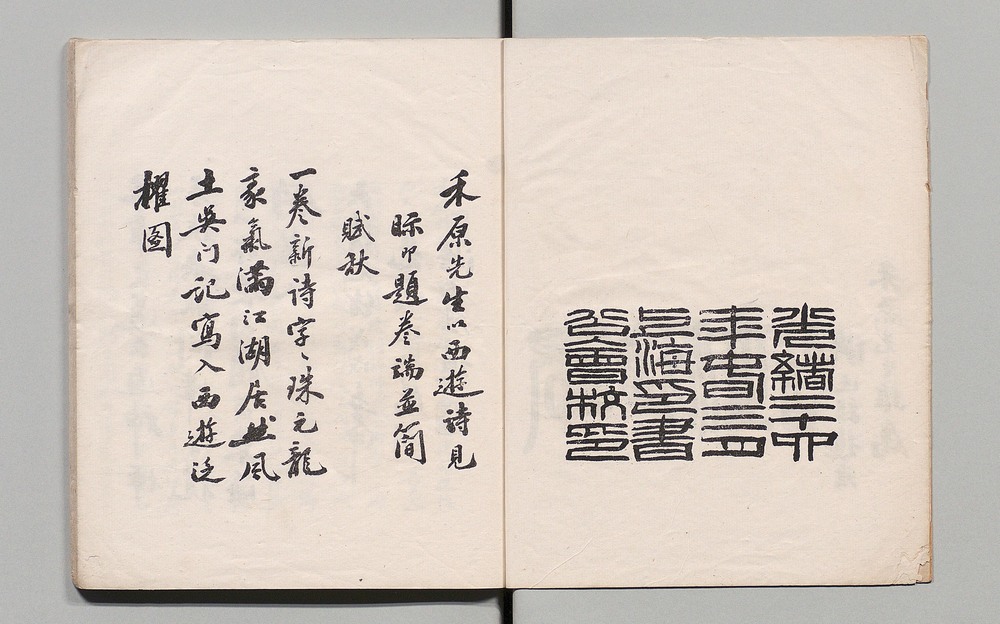 光緒二十六
年
上海印書
公會校印
禾原先生以西遊诗見
眎即題卷端並簡
賦秋
一卷新诗字〻珠元龍
豪氣滿江湖居然風
土吳门記寫入西遊泛
櫂图